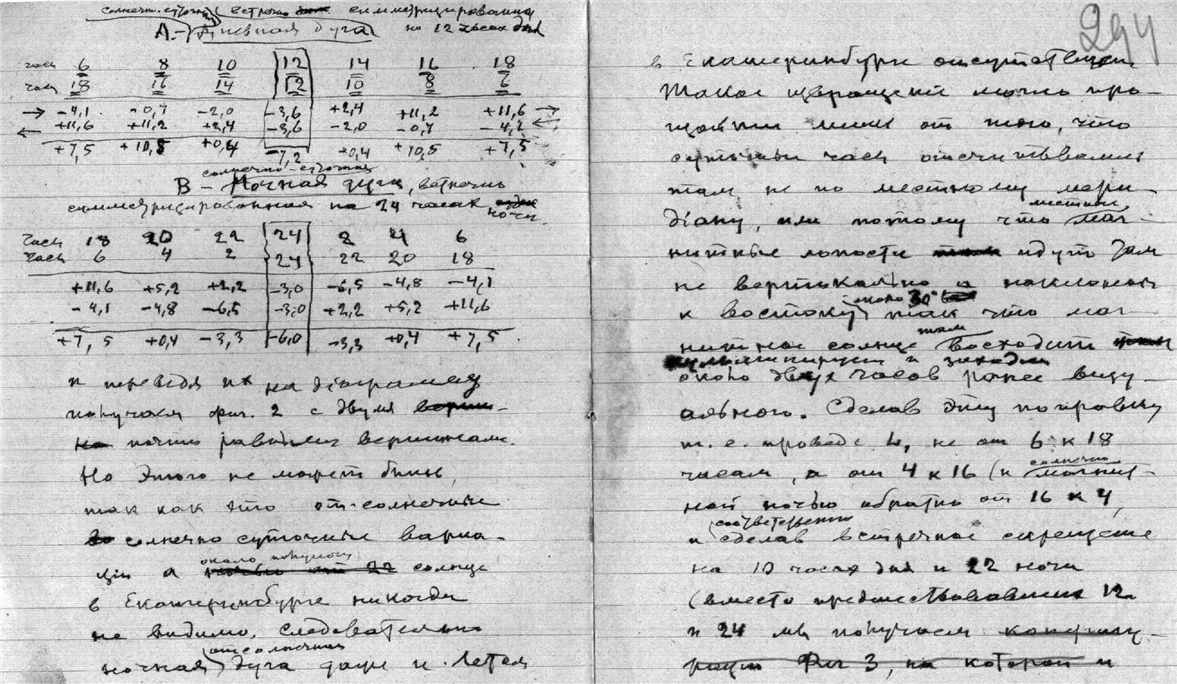 солнечно-суточная встречно симметрированная
А – Дневная дуга на 12 часах дня
часы 6 8 10 12 14 16 18
часы 18 16 14 12 10 8 6
→ -4,1 -0,7 -2,0 -3,6 +2,4 +11,2 +11,6 →
← +11,6 +11,2 +2,4 -3,6 -2,0 -0,7 -4,1 ←
+7,5 +10,5 +0,4 -7,2 +0,4 +10,5 +7,5
солнечно-суточная
В – Ночная дуга, встречно
симметрированная на 24 часах
ночи
часы 18 20 22 24 2 4 6
часы 6 4 2 24 22 20 18
+11,6 +5,2 +2,2 -3,0 -6,5 -4,8 -4,1
-4,1 -4,8 -6,5 -3,0 +2,2 +5,2 +11,6
+7,5 +0,4 -3,3 -6,0 -3,3 +0,4 +7,5
и переведя их на диаграмму
получаем фиг. 2 с двумя
почти равными вершинами.
Но этого не может быть,
так как это от-солнечные
солнечно суточные вариа-
ции а около полуночи солнце
в Екатеринбурге никогда
не видимо. Следовательно
отсолнечная
ночная дуга даже и летом
294
в Екатеринбурге отсутствует.
Такое извращение могло про-
изойти лишь от того, что
суточные часы отсчитывались
там не по местному мери-
диану, или потому что местные маг-
нитные лопасти идут там
не вертикально а наклонены
к востоку около 30° так что маг-
нитное солнце там восходит
кульминирует и заходит
около двух часов ранее визу-
ального. Сделав эту поправку
т. е. проведя не от 6 к 18
часам, а от 4 к 16 (и солнечно магнит-
ной ночью обратно от 16 к 4,
и соответственно сделав встречное скрещение
на 10 часах дня и 22 ночи
(вместо предшествовавших 12
и 24 мы получаем конфигу-
рацию Фиг 3, на которой и